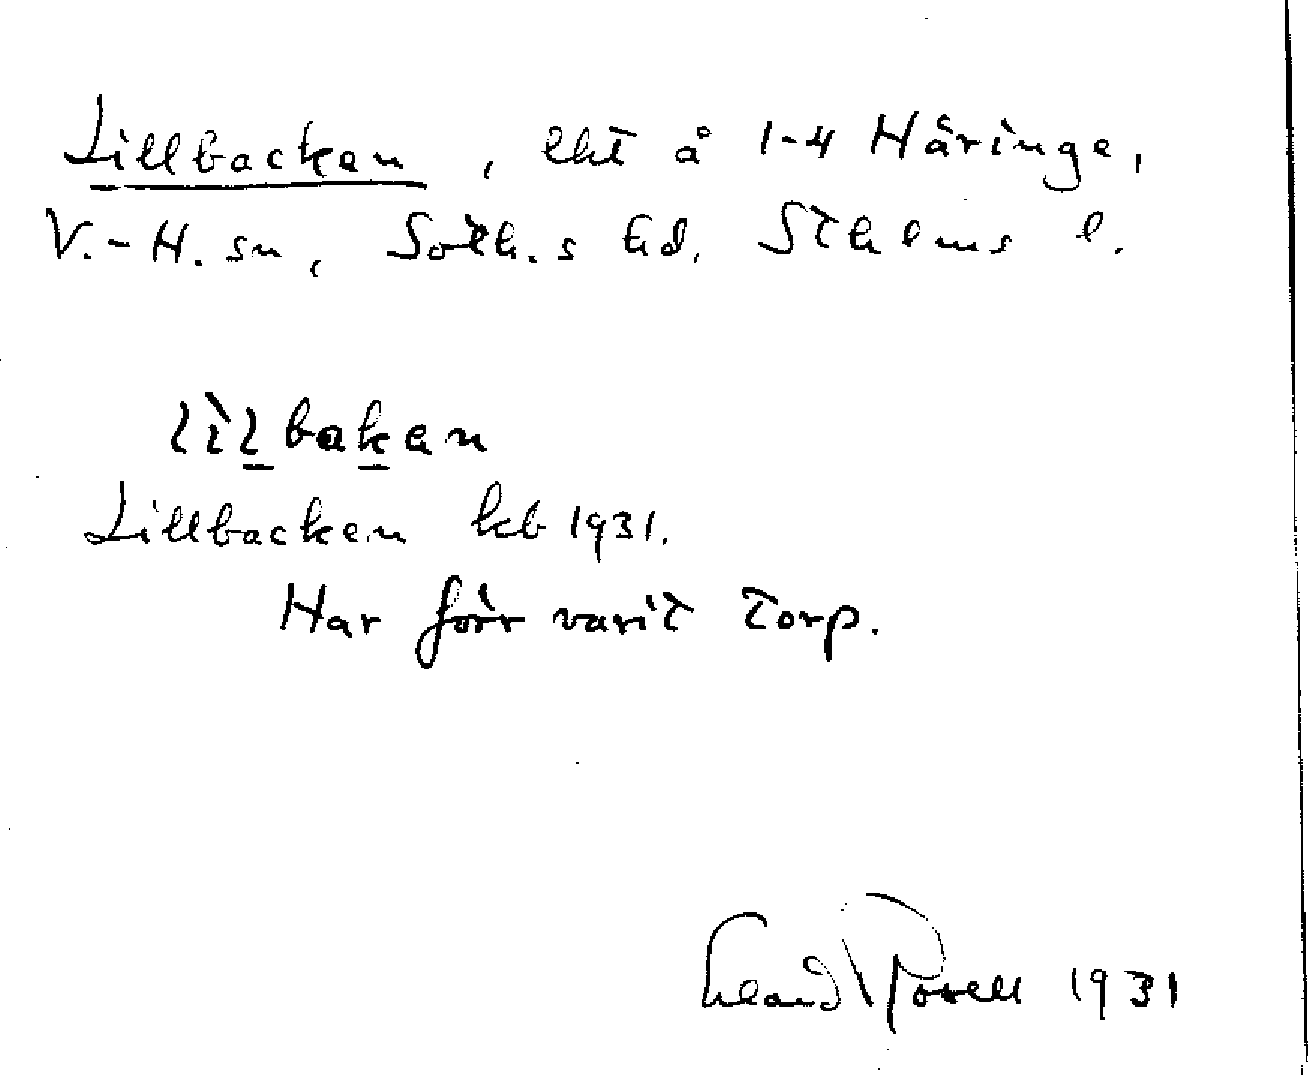 Lillbacken, lht å 1-4 Håringe,
V.-H. sn, Soth.s hd. Sthlms l.
lìlbakan
Lillbacken kb 1931.
Har förr varit torp.
1931